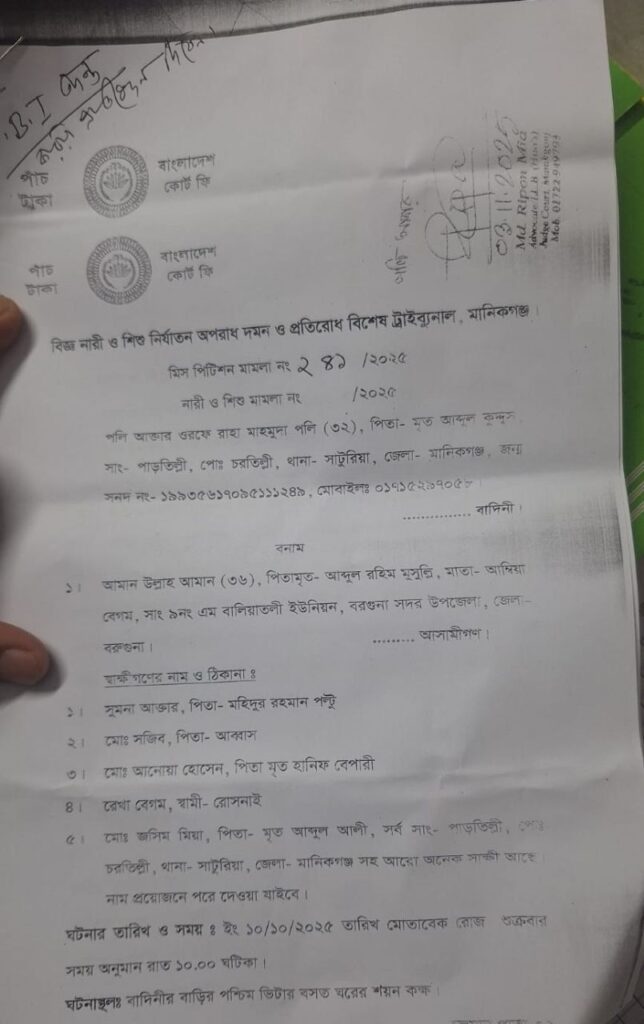 পাঁচ টাকা
বাংলাদেশ
কোর্ট ফি
পাঁচ টাকা
বাংলাদেশ
কোর্ট ফি
03.11.2025
Md. Ripon Mia
Advocate
Judge Court, Manikgonj
বিজ্ঞ নারী ও শিশু নির্যাতন অপরাধ দমন ও প্রতিরোধ বিশেষ ট্রাইব্যুনাল, মানিকগঞ্জ।
মিস পিটিশন মামলা নং ২৪৯ /২০২৫
নারী ও শিশু মামলা নং /২০২৫
পলি আক্তার ওরফে রাহা মাহমুদা পলি (৩২), পিতা- মৃত আব্দুল কুদ্দুস,
সাং- পাড়তিল্লী, পোঃ চরতিল্লী, থানা- সাটুরিয়া, জেলা- মানিকগঞ্জ, জন্ম
সনদ নং- , মোবাইলঃ
.............. বাদিনী।
বনাম
১। আমান উল্লাহ আমান (৩৬), পিতামৃত- আব্দুল রহিম মুসুল্লি, মাতা- আম্বিয়া
বেগম, সাং ৯নং এম বালিয়াতলী ইউনিয়ন, বরগুনা সদর উপজেলা, জেলা-
বরগুনা। ......... আসামীগণ।
স্বাক্ষীগণের নাম ও ঠিকানা ঃ
১। সুমনা আক্তার, পিতা- মহিদুর রহমান পল্টু
২। মোঃ সজিব, পিতা- আব্বাস
৩। মোঃ আনোয়া হোসেন, পিতা মৃত হানিফ বেপারী
৪। রেখা বেগম, স্বামী- রোসনাই
৫। মোঃ জসিম মিয়া, পিতা- মৃত আব্দুল আলী, সর্ব সাং- পাড়তিল্লী, পোঃ
চরতিল্লী, থানা- সাটুরিয়া, জেলা- মানিকগঞ্জ সহ আরো অনেক সাক্ষী আছে।
নাম প্রয়োজনে পরে দেওয়া যাইবে।
ঘটনার তারিখ ও সময় ঃ ইং ১০/১০/২০২৫ তারিখ মোতাবেক রোজ শুক্রবার
সময় অনুমান রাত ১০.০০ ঘটিকা।
ঘটনাস্থলঃ বাদিনীর বাড়ির পশ্চিম ভিটার বসত ঘরের শয়ন কক্ষ।